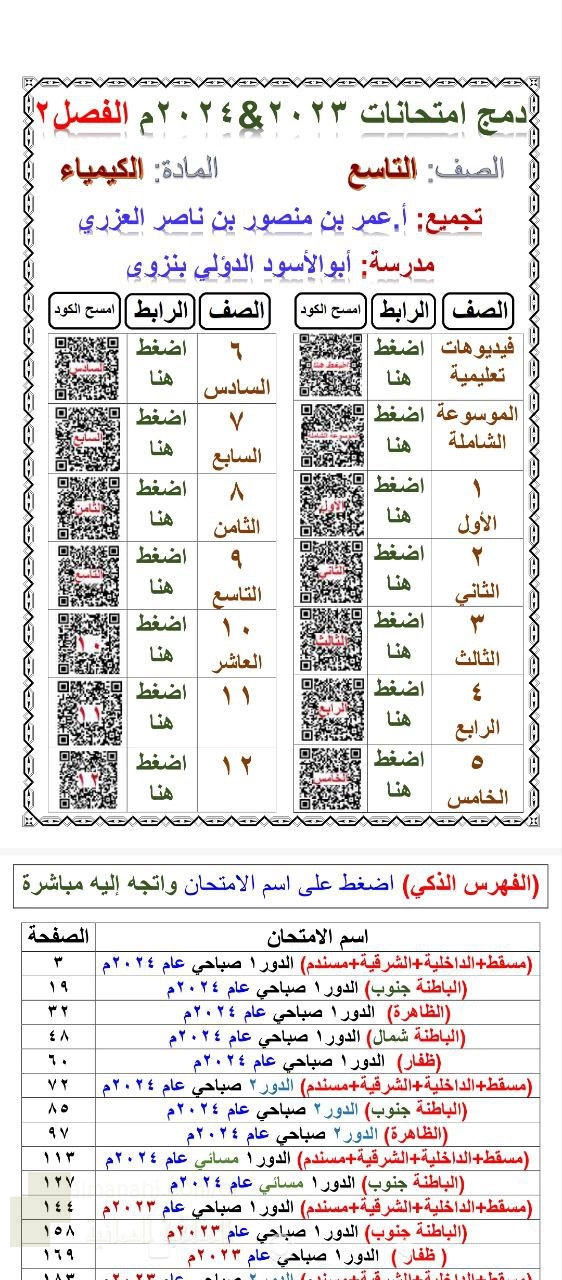 دمج امتحانات ٢٠٢٣&٢٠٢٤م الفصل٢
الصف: التاسع المادة: الكيمياء
تجميع: أ.عمر بن منصور بن ناصر العزري
مدرسة: أبوالأسود الدؤلي بنزوى
الصف الرابط امسح الكود الصف الرابط امسح الكود
فيديوهات تعليمية اضغط هنا اضغط هنا ٦ السادس اضغط هنا السادس
الموسوعة الشاملة اضغط هنا الموسوعة الشاملة ٧ السابع اضغط هنا السابع
١ الأول اضغط هنا الأول ٨ الثامن اضغط هنا الثامن
٢ الثاني اضغط هنا الثاني ٩ التاسع اضغط هنا التاسع
٣ الثالث اضغط هنا الثالث ١٠ العاشر اضغط هنا ١٠
٤ الرابع اضغط هنا الرابع ١١ اضغط هنا ١١
٥ الخامس اضغط هنا الخامس ١٢ اضغط هنا ١٢
(الفهرس الذكي) اضغط على اسم الامتحان واتجه إليه مباشرة
اسم الامتحان الصفحة
(مسقط+الداخلية+الشرقية+مسندم) الدور١ صباحي عام ٢٠٢٤م ٣
(الباطنة جنوب) الدور١ صباحي عام ٢٠٢٤م ١٩
(الظاهرة) الدور١ صباحي عام ٢٠٢٤م ٣٢
(الباطنة شمال) الدور١ صباحي عام ٢٠٢٤م ٤٨
(ظفار) الدور١ صباحي عام ٢٠٢٤م ٦٠
(مسقط+الداخلية+الشرقية+مسندم) الدور٢ صباحي عام ٢٠٢٤م ٧٢
(الباطنة جنوب) الدور٢ صباحي عام ٢٠٢٤م ٨٥
(الظاهرة) الدور٢ صباحي عام ٢٠٢٤م ٩٧
(مسقط+الداخلية+الشرقية+مسندم) الدور١ مسائي عام ٢٠٢٤م ١١٣
(الباطنة جنوب) الدور١ مسائي عام ٢٠٢٤م ١٢٧
(مسقط+الداخلية+الشرقية+مسندم) الدور١ صباحي عام ٢٠٢٣م ١٤٤
(الباطنة جنوب) الدور١ صباحي عام ٢٠٢٣م ١٥٨
( ظفار ) الدور١ صباحي عام ٢٠٢٣م ١٦٩